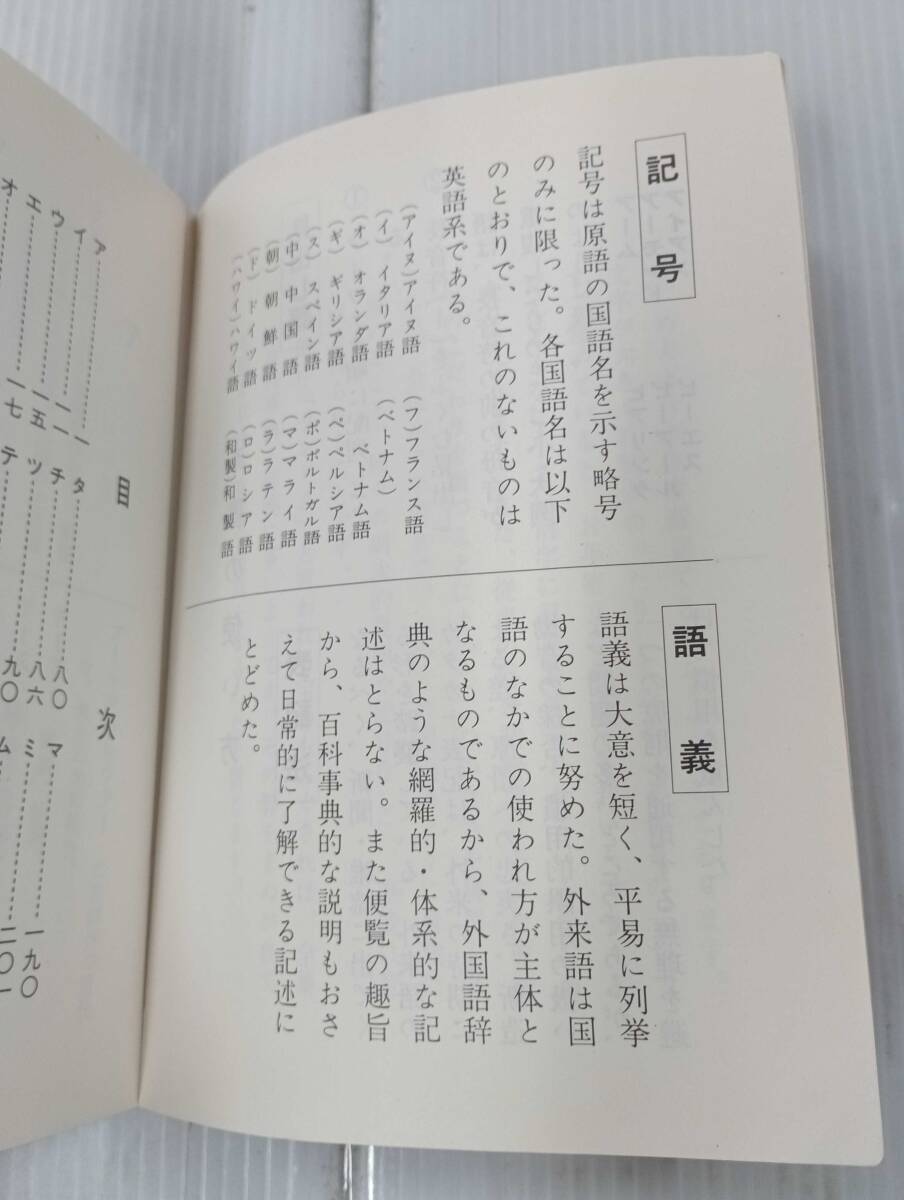 記号
記号は原語の国語名を示す略号
のみに限った。各国語名は以下
のとおりで、これのないものは
英語系である。
(アイヌ)アイヌ語
(イ)イタリア語
(オ)オランダ語
(ギ)ギリシア語
(ス)スペイン語
(中)中国語
(朝)朝鮮語
(ド)ドイツ語
(ハワイ)ハワイ語
(フ)フランス語
(ベトナム)
ベトナム語
(ペ)ペルシア語
(ポ)ポルトガル語
(マ)マライ語
(ラ)ラテン語
(ロ)ロシア語
(和製)和製語
語義
語義は大意を短く、平易に列挙
することに努めた。外来語は国
語のなかでの使われ方が主体と
なるものであるから、外国語辞
典のような網羅的・体系的な記
述はとらない。また便覧の趣旨
から、百科事典的な説明もおさ
えて日常的に了解できる記述に
とどめた。
目次
ア……一
イ……一一
ウ……一五
エ……一七
オ
タ……八〇
チ……八六
ツ……九〇
テ
マ……一九〇
ミ……二〇一
ム